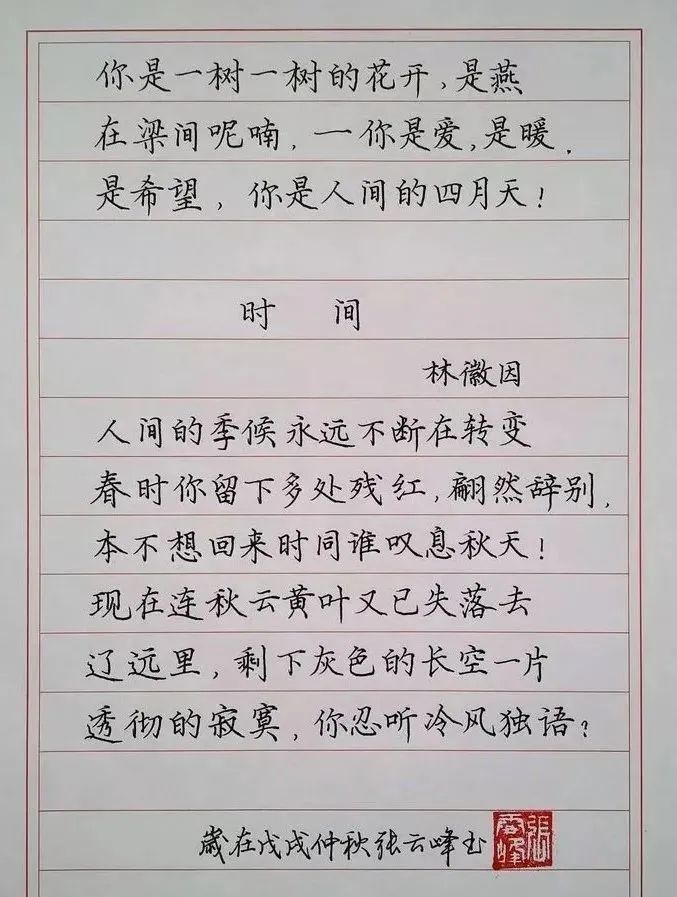 你是一树一树的花开,是燕
在梁间呢喃,一你是爱,是暖.
是希望,你是人间的四月天!
时 间
林徽因
人间的季候永远不断在转变
春时你留下多处残红,翩然辞别,
本不想回来时同谁叹息秋天!
现在连秋云黄叶又已失落去
辽远里,剩下灰色的长空一片
透彻的寂寞,你忍听冷风独语?
岁在戊戌仲秋张云峰书
张云峰